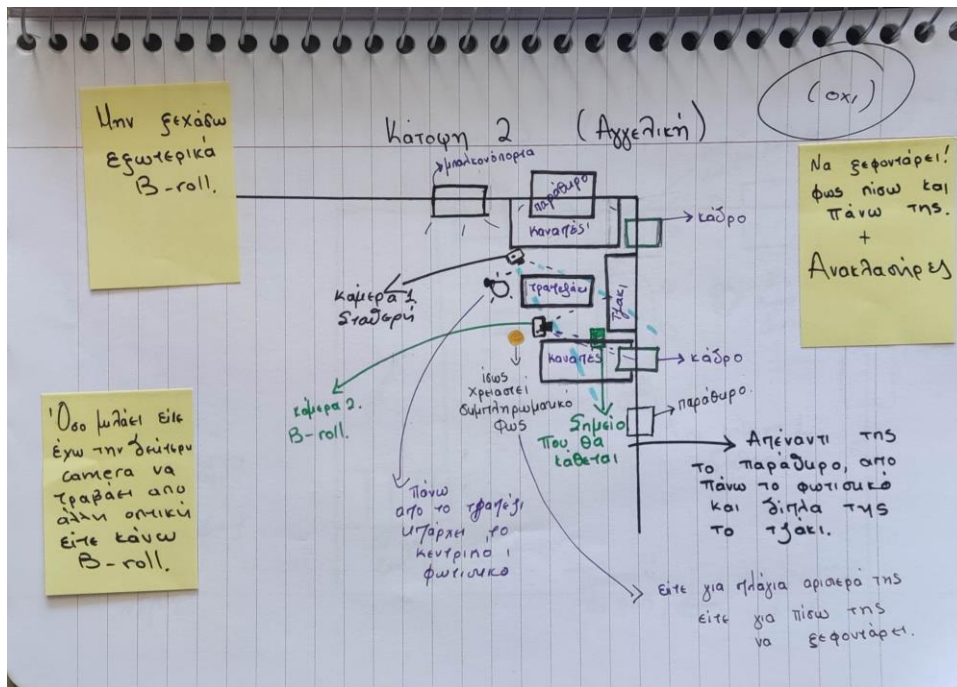 (όχι)
Κάτοψη 2 (Αγγελική)
Μην ξεχάσω
εξωτερικά
B-roll.
Να ξεφοντάρει!
φως πίσω και
πάνω της.
+
Ανακλαστήρες
μπαλκονόπορτα
παράθυρο
καναπές
κάδρο
τραπεζάκι
τζάκι
κάμερα 1
Σταθερή
καναπές
κάδρο
παράθυρο.
κάμερα 2.
B-roll.
ίσως
χρειαστεί
συμπληρωματικο
φως
Σημείο
που θα
κάθεται
Απέναντι της
το παράθυρο, από
πάνω το φωτιστικό
και δίπλα της
το τζάκι.
Όσο μιλάει είτε
έχω την δεύτερη
camera να
τραβάει από
άλλη οπτική
είτε κάνω
B-roll.
πάνω
από το τραπέζι
υπάρχει το
κεντρικό
φωτιστικο
είτε για πλάγια αριστερά της
είτε για πίσω της
να ξεφοντάρει.